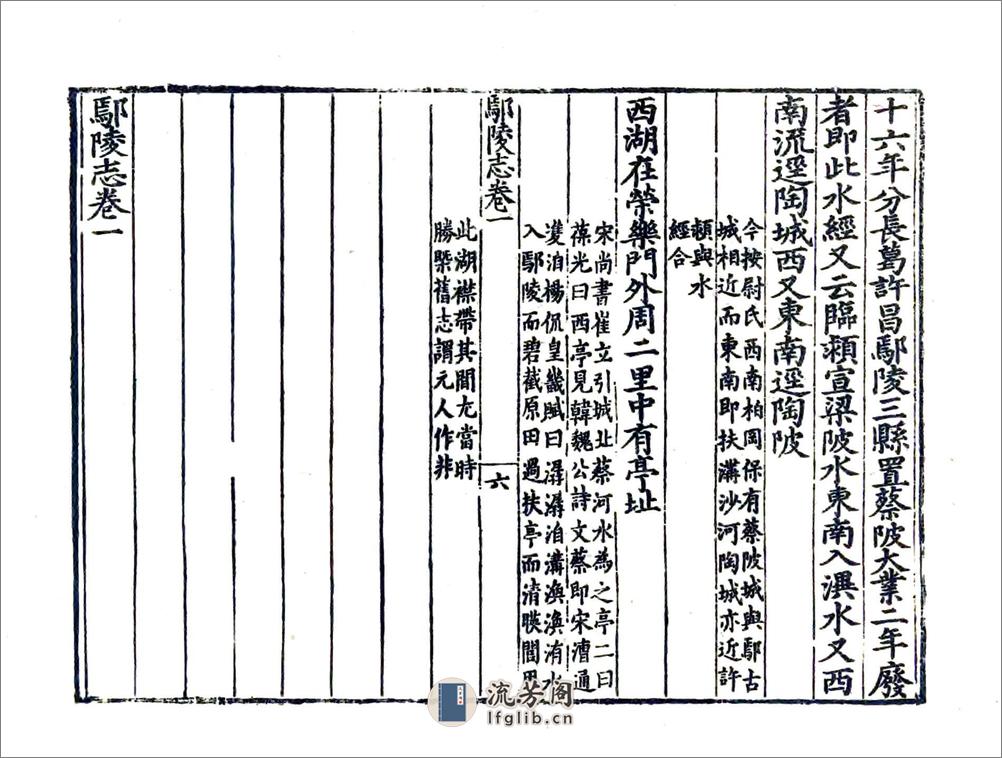 十六年分長葛許昌鄢陵三縣置蔡陂大業二年廢
者即此水經又云臨潁宣梁陂水東南入潩水又西
南流逕陶城西又東南逕陶陂
今按尉氏西南柏岡保有蔡陂城與鄢古
城相近而東南即扶溝沙河陶城亦近許
頴與水
經合
西湖在榮樂門外周二里中有亭址
宋尚書崔立引城北蔡河水為之亭二曰
葆光曰西亭見韓魏公詩文蔡即宋漕通
鄢陵志卷一
六
湲洎楊侃皇畿賦曰潺潺洎溝渙渙洧水
入鄢陵而碧截原田過扶亭而清暎閭
此湖襟帶其間尤當時
勝槩舊志謂元人作非
鄢陵志卷一
流芳阁
lfglib.cn